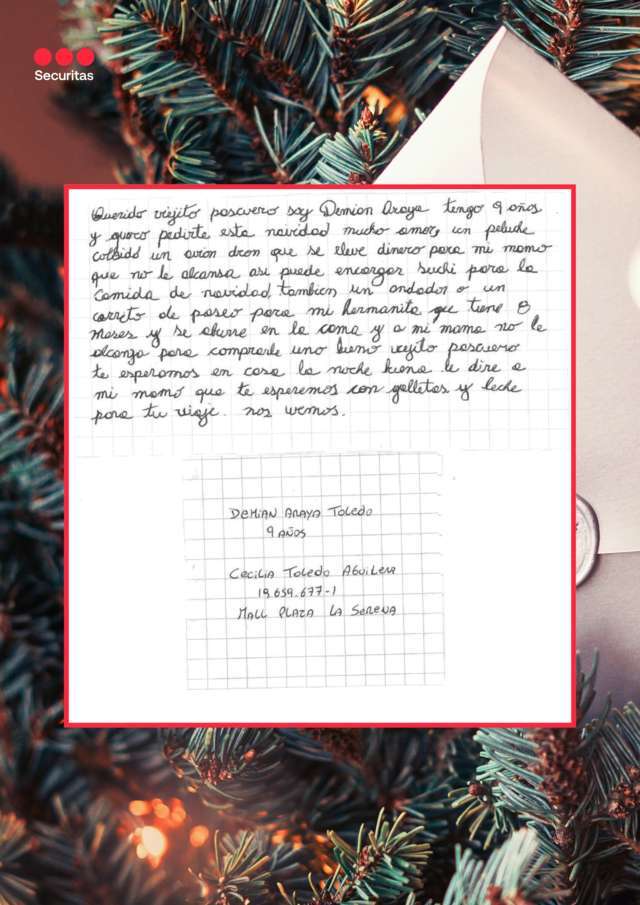 Securitas
Querido viejito pascuero soy Demian Araya tengo 9 años
y quiero pedirte esta navidad mucho amor, un peluche
un avion dron que se eleve dinero para mi mamo
que no le alcansa asi puede encargar suchi para la
Comida de navidad, tambien un andador o un
carrito de paseo para mi hermanita que tiene 8
meses y se aburre en la cama y a mi mama no le
alcanza para comprarle uno bueno viejito pascuero
te esperamos en casa la noche buena le dire a
mi mamá que te esperemos con galletas y leche
para tu viaje. nos vemos.
DEMIAN ARAYA TOLEDO
9 AÑOS
CECILIA TOLEDO AGUILERA
19.659.677-1
MALL PLAZA LA SERENA